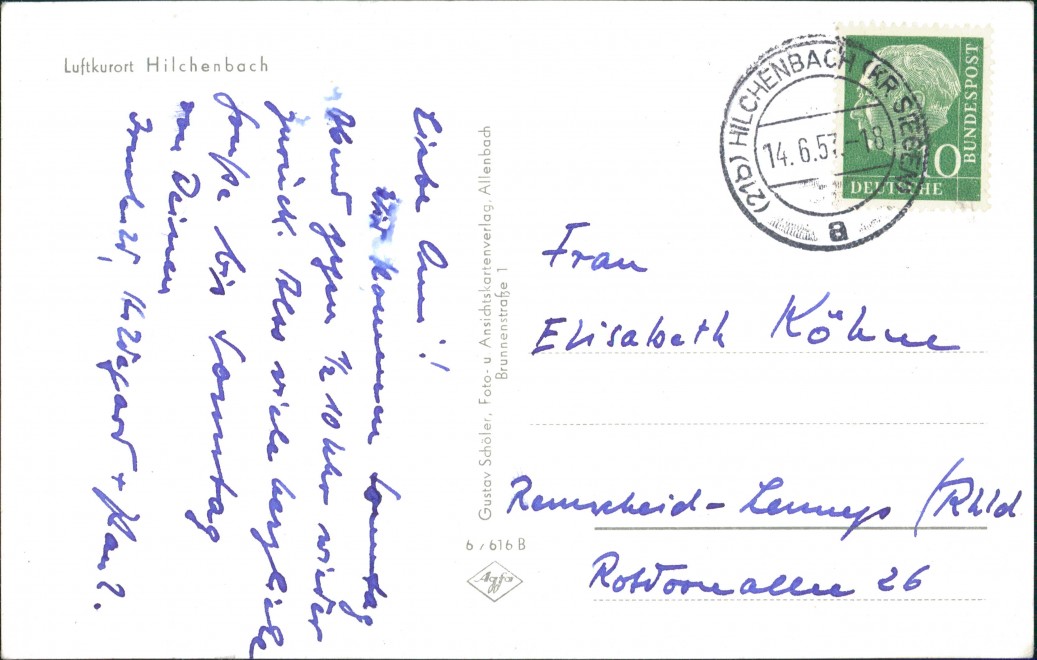 Luftkurort Hilchenbach
Liebe Omi!
Wir kommen Sonntag
Abend gegen 1/2 10 Uhr wieder
zurück. Also viele herzliche
Grüße bis Sonntag
von Deinen
Hildegard + Hans.
Gustav Schöler, Foto- u. Ansichtskartenverlag, Allenbach
Brunnenstraße 1
6/616 B
Agfa
(21b) HILCHENBACH (KR. SIEGEN)
14.6.57.-18
a
10
DEUTSCHE
BUNDESPOST
Frau
Elisabeth Köhne
Remscheid-Lennep /Rhld
Rotdornallee 26